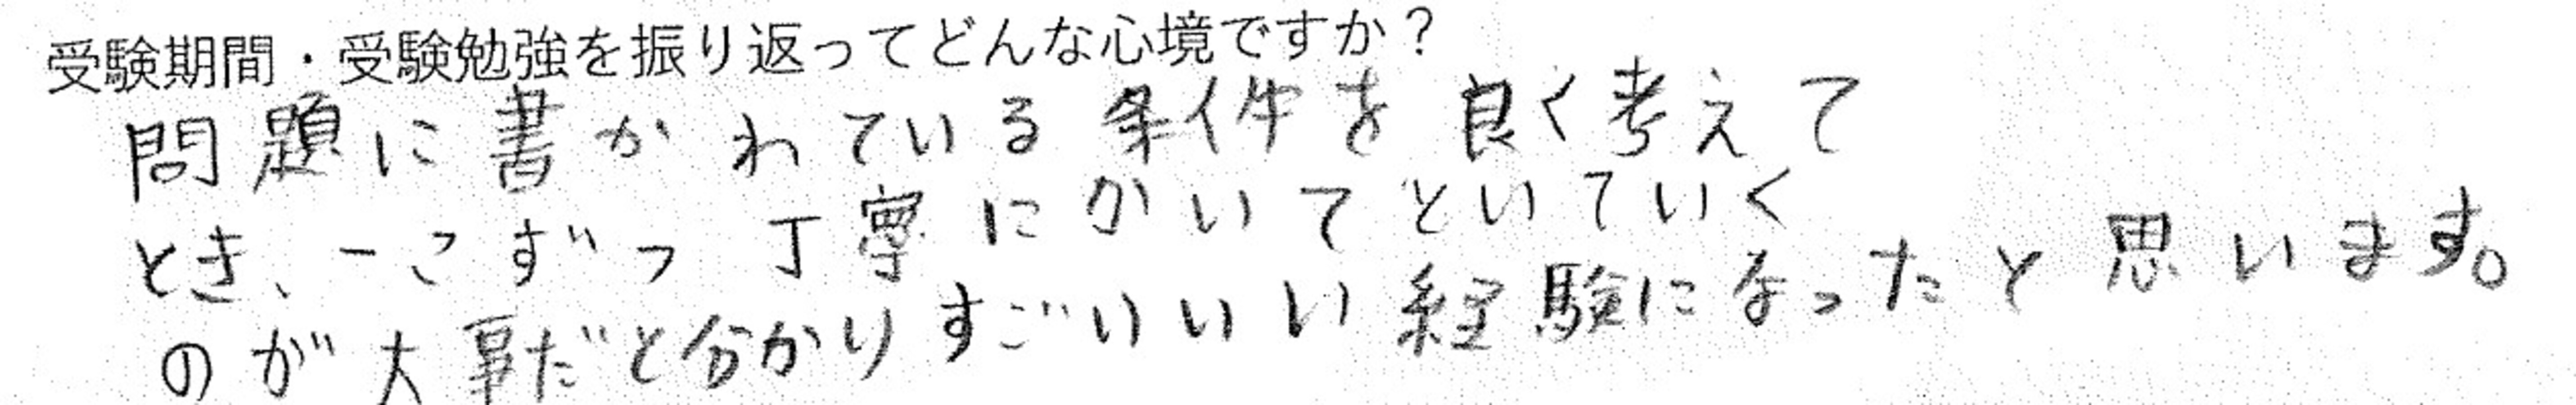 受験期間・受験勉強を振り返ってどんな心境ですか？
問題に書かれている条件を良く考えて
とき、一こずつ丁寧にかいてといていく
のが大事だと分かりすごいいい経験になったと思います。